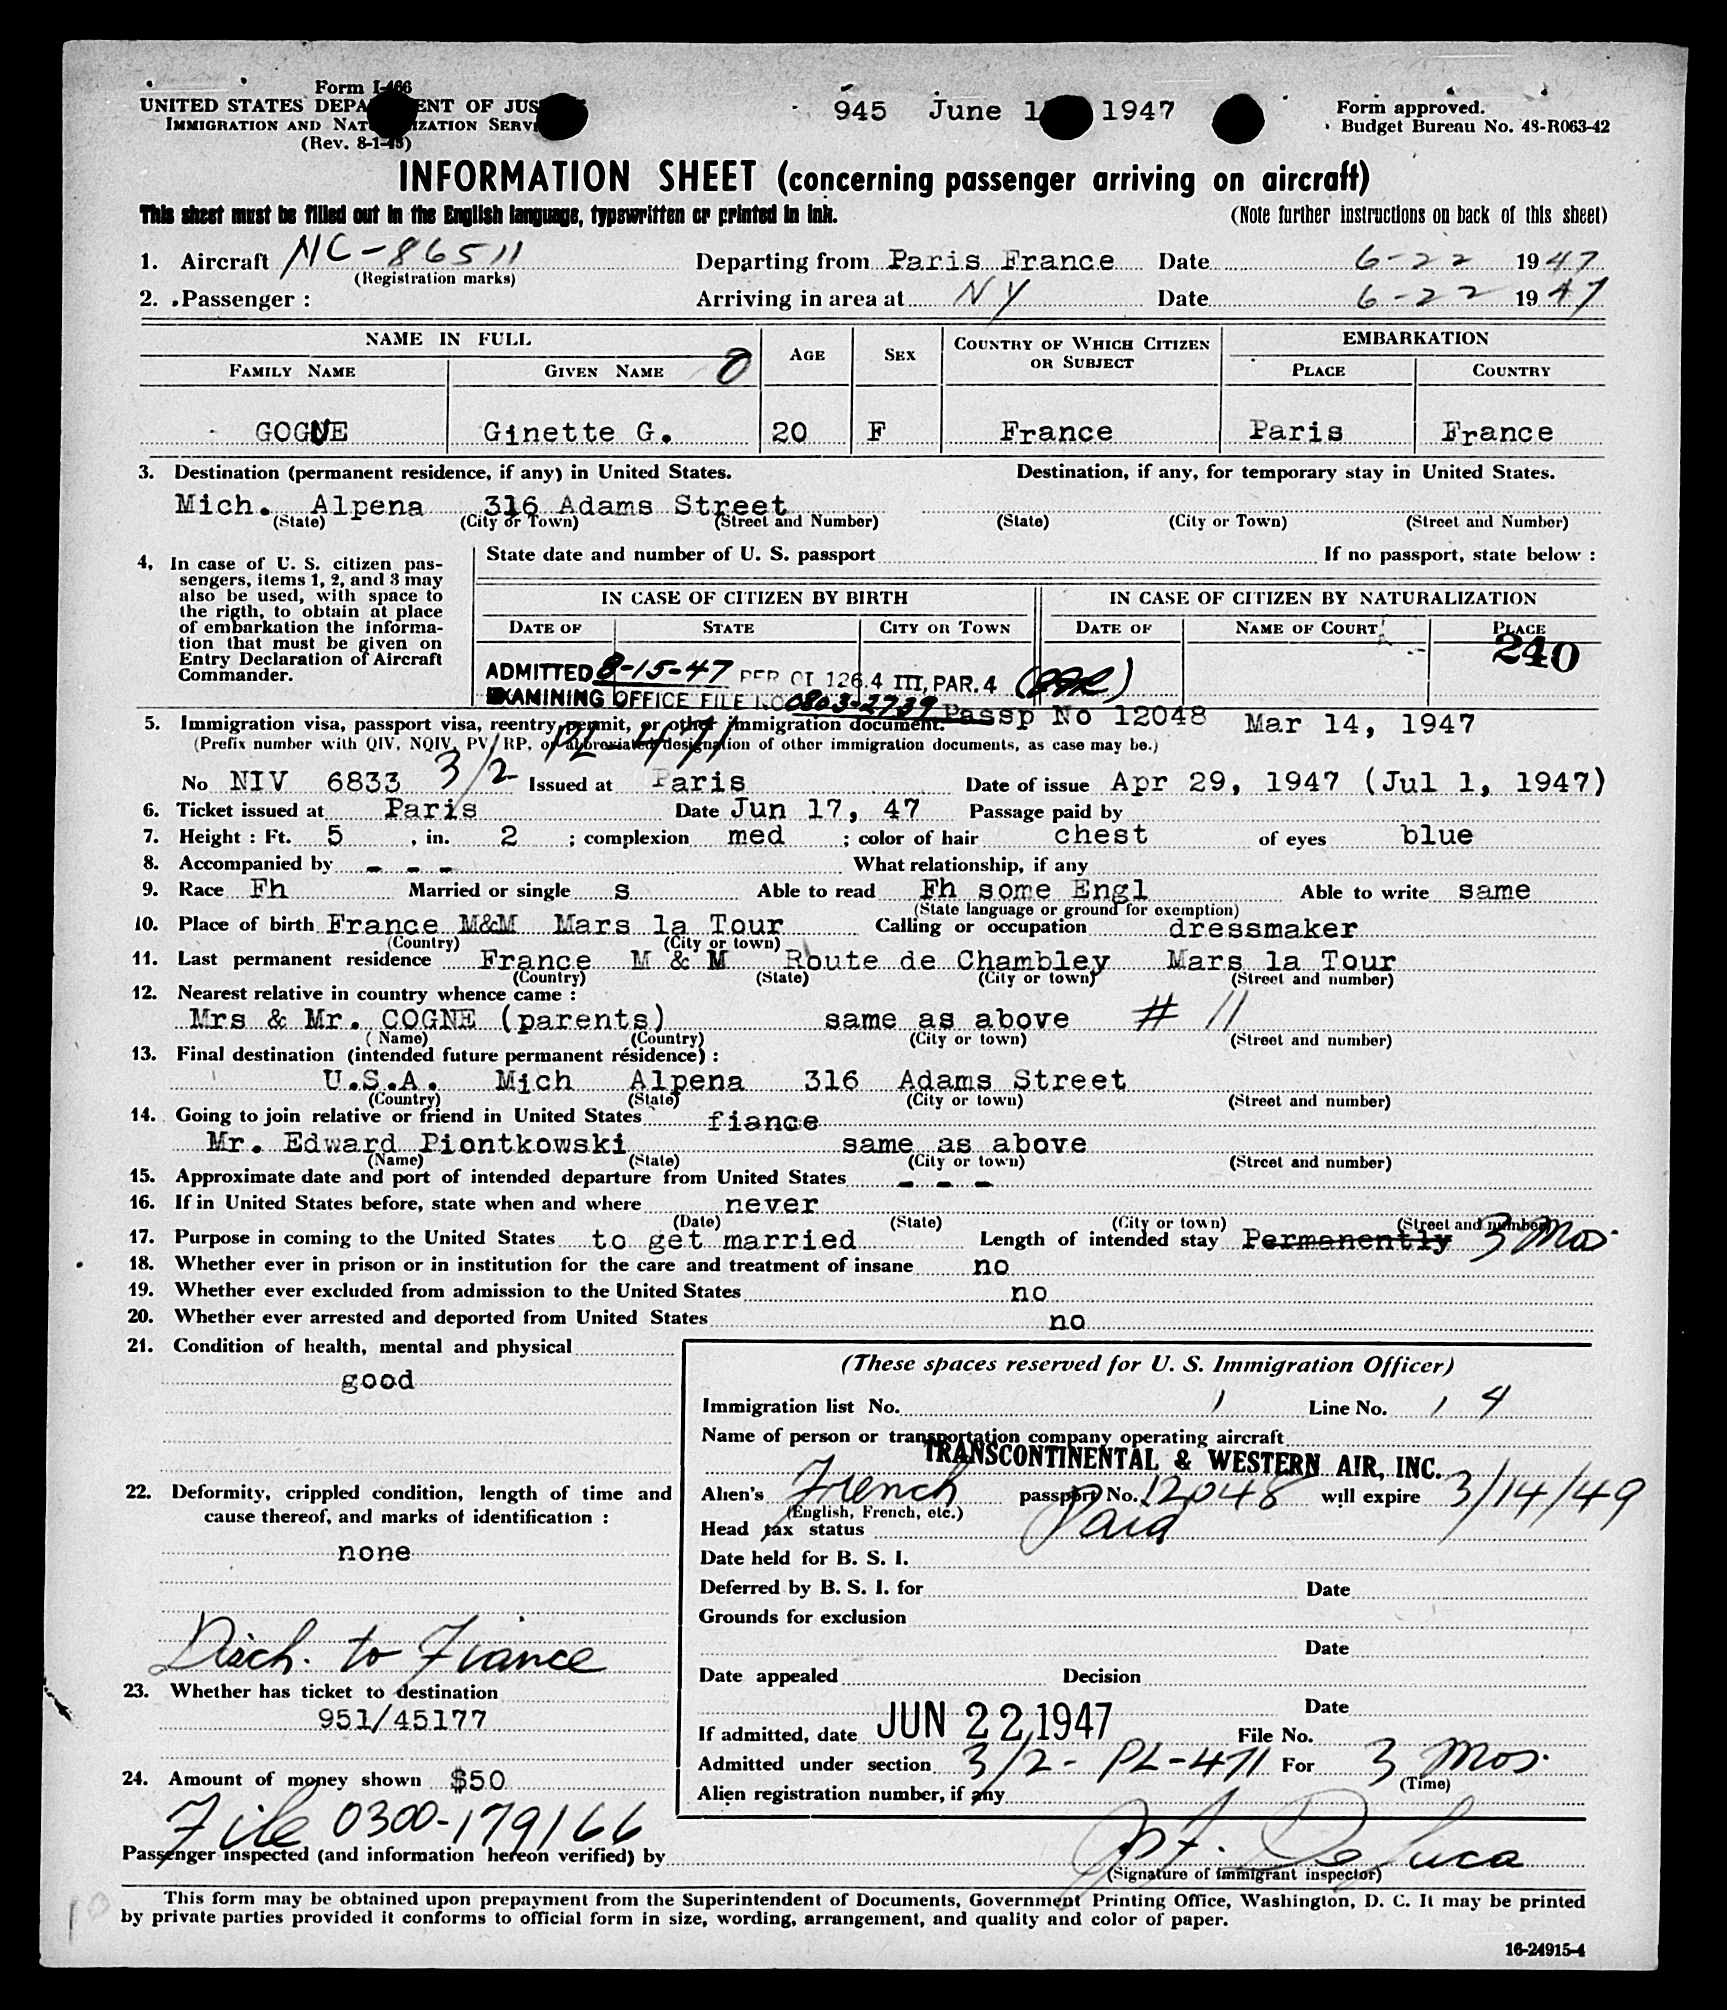 Form I-466
UNITED STATES DEPARTMENT OF JUSTICE
IMMIGRATION AND NATURALIZATION SERVICE
(Rev. 8-1-45)
945 June 1 1947
Form approved.
Budget Bureau No. 43-R063-42
INFORMATION SHEET (concerning passenger arriving on aircraft)
This sheet must be filled out in the English language, typewritten or printed in ink.
(Note further instructions on back of this sheet)
1. Aircraft NC-86511 Departing from Paris France Date 6-22 1947
(Registration marks)
2. Passenger : Arriving in area at NY Date 6-22 1947
NAME IN FULL AGE SEX COUNTRY OF WHICH CITIZEN OR SUBJECT EMBARKATION
FAMILY NAME GIVEN NAME PLACE COUNTRY
GOGNE Ginette G. 20 F France Paris France
3. Destination (permanent residence, if any) in United States. Destination, if any, for temporary stay in United States.
Mich. Alpena 316 Adams Street
(State) (City or Town) (Street and Number) (State) (City or Town) (Street and Number)
4, In case of U. S. citizen pas-
sengers, items 1, 2, and 3 may
also be used, with space to
the rigth, to obtain at place
of embarkation the informa-
tion that must be given on
Entry Declaration of Aircraft
Commander.
State date and number of U. S. passport If no passport, state below :
IN CASE OF CITIZEN BY BIRTH IN CASE OF CITIZEN BY NATURALIZATION
DATE OF STATE CITY OR TOWN DATE OF NAME OF COURT PLACE
240
ADMITTED 8-15-47 PER OI 126.4 III, PAR. 4
EXAMINING OFFICE FILE NO 0803-2739
5. Immigration visa, passport visa, reentry permit, or other immigration document. Passp No 12048 Mar 14, 1947
(Prefix number with QIV, NQIV, PV, RP, or abbreviated designation of other immigration documents, as case may be.)
PL-471
No NIV 6833 3/2 Issued at Paris Date of issue Apr 29, 1947 (Jul 1, 1947)
6. Ticket issued at Paris Date Jun 17, 47 Passage paid by
7. Height : Ft. 5 , in. 2 ; complexion med ; color of hair chest of eyes blue
8. Accompanied by - - - What relationship, if any
9. Race Fh Married or single s Able to read Fh some Engl Able to write same
(State language or ground for exemption)
10. Place of birth France M&M Mars la Tour Calling or occupation dressmaker
(Country) (City or town)
11. Last permanent residence France M & M Route de Chambley Mars la Tour
(Country) (State) (City or town) (Street and number)
12. Nearest relative in country whence came :
Mrs & Mr. COGNE (parents) same as above # 11
(Name) (Country) (City or town) (Street and number)
13. Final destination (intended future permanent résidence) :
U.S.A. Mich Alpena 316 Adams Street
(Country) (State) (City or town) (Street and number)
14. Going to join relative or friend in United States fiance
Mr. Edward Piontkowski same as above
(Name) (State) (City or town) (Street and number)
15. Approximate date and port of intended departure from United States - - -
16. If in United States before, state when and where never
(Date) (State) (City or town) (Street and number)
17. Purpose in coming to the United States to get married Length of intended stay Permanently 3 Mos.
18. Whether ever in prison or in institution for the care and treatment of insane no
19. Whether ever excluded from admission to the United States no
20. Whether ever arrested and deported from United States no
21. Condition of health, mental and physical
good
22. Deformity, crippled condition, length of time and
cause thereof, and marks of identification :
none
Disch. to Fiance
23. Whether has ticket to destination
951/45177
24. Amount of money shown $50
File 0300-179166
(These spaces reserved for U. S. Immigration Officer)
Immigration list No. 1 Line No. 1 4
Name of person or transportation company operating aircraft
TRANSCONTINENTAL & WESTERN AIR, INC.
Alien's French passport No. 12048 will expire 3/14/49
(English, French, etc.)
Head tax status Paid
Date held for B. S. I.
Deferred by B. S. I. for Date
Grounds for exclusion
Date
Date appealed Decision
Date
If admitted, date JUN 22 1947 File No.
Admitted under section 3/2 - PL-471 For 3 Mos.
(Time)
Alien registration number, if any
Passenger inspected (and information hereon verified) by De Luca
(Signature of immigrant inspector)
This form may be obtained upon prepayment from the Superintendent of Documents, Government Printing Office, Washington, D. C. It may be printed
by private parties provided it conforms to official form in size, wording, arrangement, and quality and color of paper.
16-24915-4